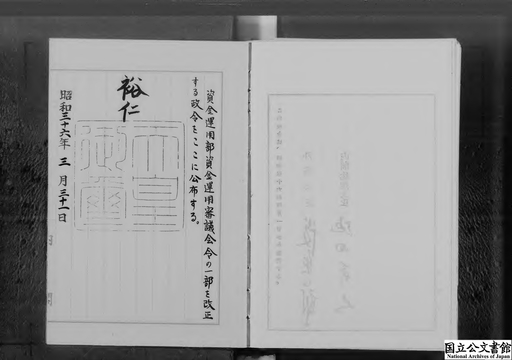 資金運用部資金運用審議会令の一部を改正
する政令をここに公布する。
裕仁
天皇
御璽
昭和三十六年三月三十一日
国立公文書館
National Archives of Japan